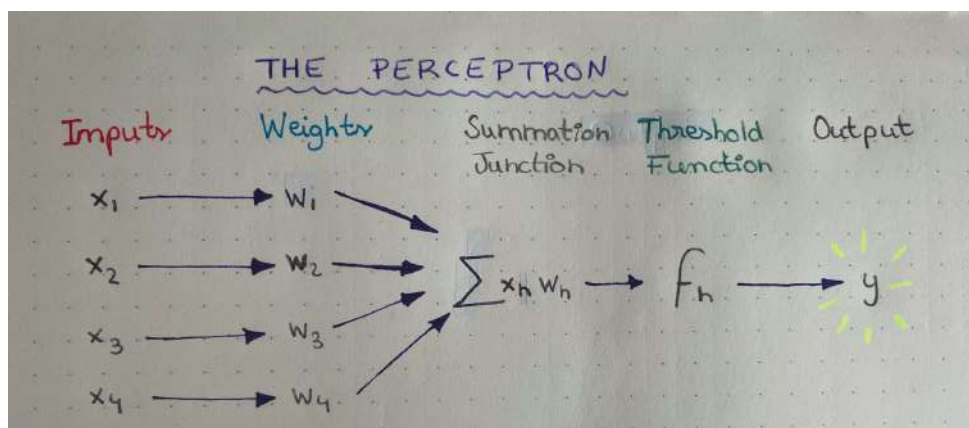 THE PERCEPTRON
Inputs Weights Summation Junction Threshold Function Output
x₁ W₁
x₂ W₂ ∑ xₕ Wₕ fₕ y
x₃ W₃
x₄ W₄